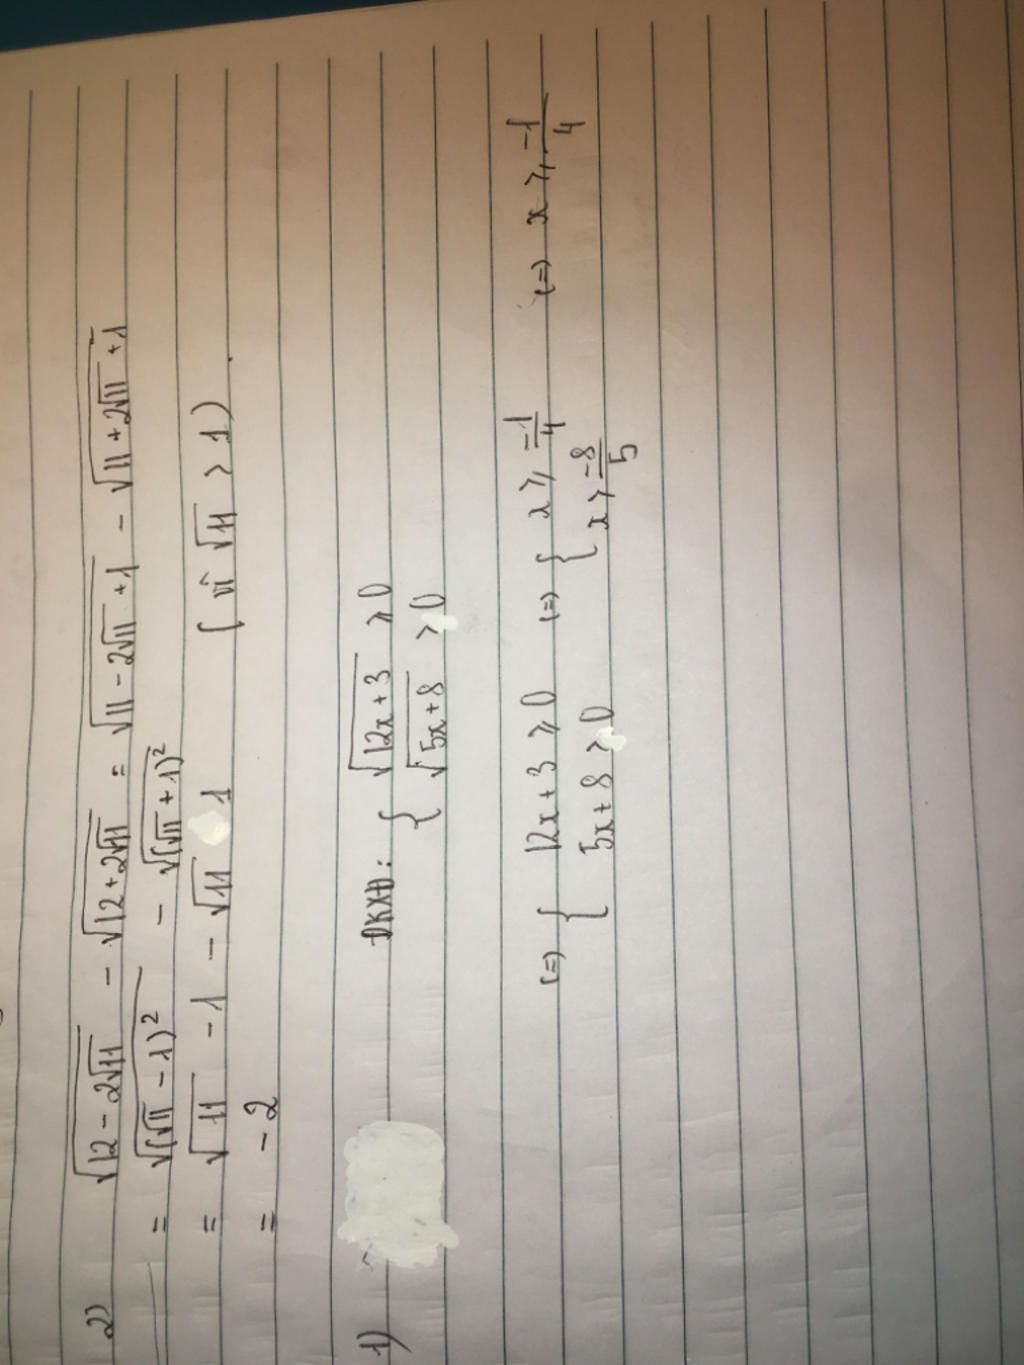 2) √(12 - 2√11) - √(12 + 2√11) = √(11 - 2√11 + 1) - √(11 + 2√11 + 1)
= √((√11 - 1)²) - √((√11 + 1)²)
= √11 - 1 - √11 1 ( vì √11 > 1 )
= - 2
1) ĐKXĐ: { √(12x + 3) ⩾ 0
√(5x + 8) > 0
(=) { 12x + 3 ⩾ 0 (=) { x ⩾ -1/4 (=) x ⩾ -1/4
5x + 8 > 0 x > -8/5